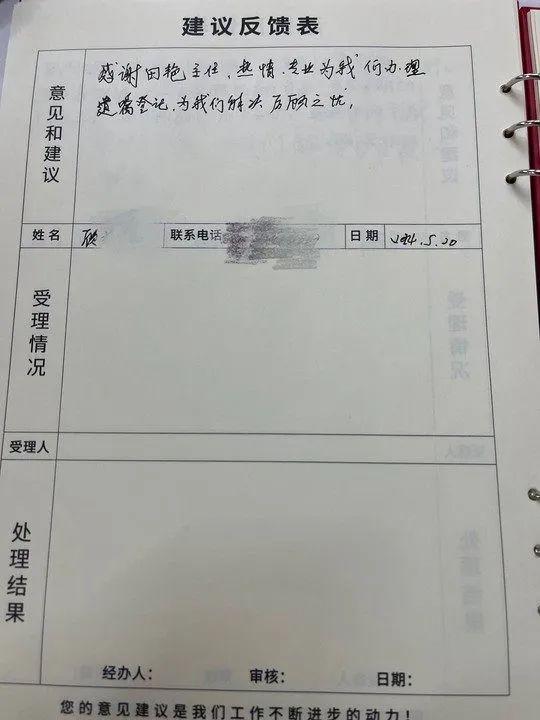 建议反馈表
意见和建议
感谢田艳主任,热情、专业为我们办理
遗嘱登记,为我们解决后顾之忧,
姓名
联系电话
日期 2024.5.20
受理情况
受理人
处理结果
经办人: 审核: 日期:
您的意见建议是我们工作不断进步的动力!